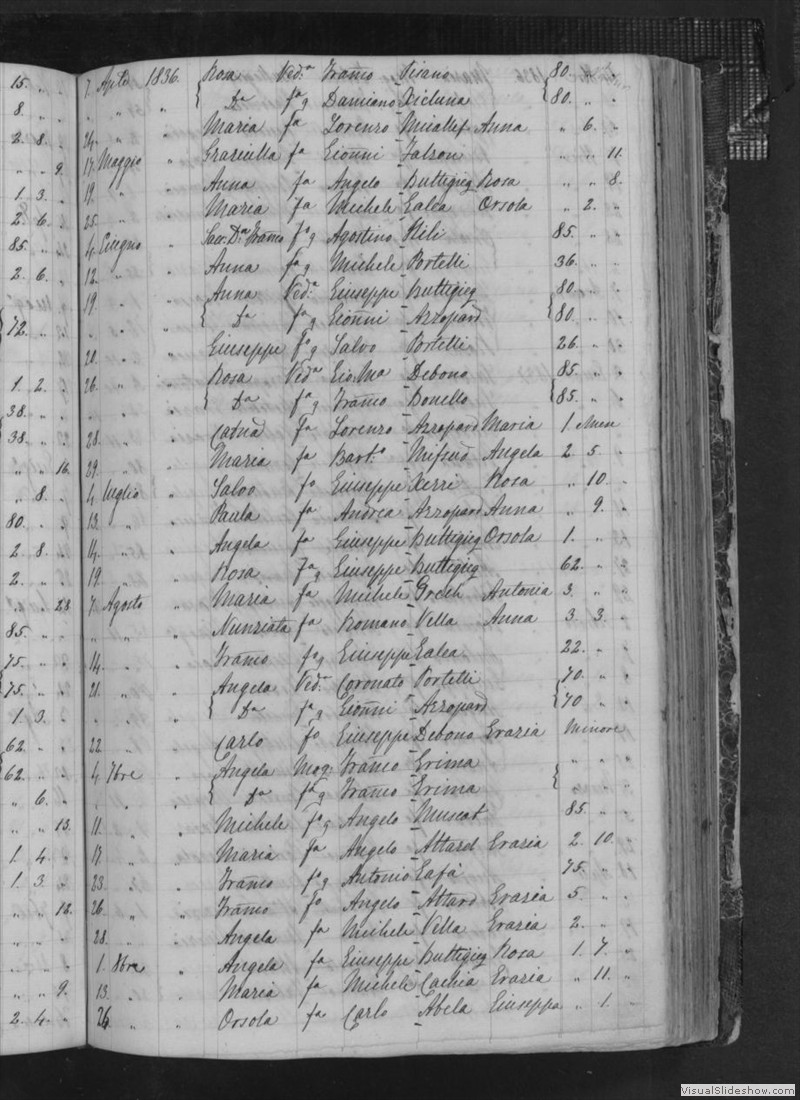 15. „ „ 7 Aple 1836. Rosa Ved.a Franco Pisano 80. „ „
„ „ „ Da fa g Damiano Xicluna 80. „ „
8. „ „ 24. „ „ Maria fa Lorenzo Micallef Anna „ 6. „
2. 8. „ 17. Maggio „ Graziella fa Gionni Falzon „ „ 11.
„ „ 9. 19. „ „ Anna fa Angelo Buttigieg Rosa „ „ 8.
1. 3. „ 25. „ „ Maria fa Michele Galea Orsola „ 2. „
2. 6. „ 4. Giugno „ Sac. Dn Franco fo g Agostino Mili 85. „ „
85. „ „ 12. „ „ Anna fa g Michele Portelli 36. „ „
2. 6. „ 19. „ „ Anna Ved.a Giuseppe Buttigieg 80. „ „
„ „ „ Da fa g Gionni Azzopard 80. „ „
72. „ „ 20. „ „ Giuseppe fo g Salvo Portelli 26. „ „
26. „ „ Rosa Ved.a Gio. Ma Debono 85. „ „
1. 2. „ „ „ „ Da fa g Franco Bonello 85. „ „
38. „ „ 28. „ „ Catna fa Lorenzo Azzopard Maria 1. Men
38. „ „ 29. „ „ Maria fa Bart.o Mifsud Angela 2. 5. „
„ „ 16. 4. Luglio „ Salvo fo Giuseppe Xerri Rosa „ 10. „
„ 8. „ 13. „ „ Paula fa Andrea Azzopard Anna „ 9. „
80. „ „ 14. „ „ Angela fa Giuseppe Buttigieg Orsola 1. „ „
2. 8. „ 19. „ „ Rosa fa g Giuseppe Buttigieg 62. „ „
2. „ „ 7. Agosto „ Maria fa Michele Grech Antonia 3. „ „
„ „ 28. „ „ „ Nunziata fa Romano Vella Anna 3. 3. „
85. „ „ 14. „ „ Franco fo g Giuseppe Galea 22. „ „
75. „ „ 21. „ „ Angela Ved.a Coronato Portelli 70. „ „
75. „ „ „ „ „ Da fa g Gionni Azzopard 70 „ „
1. 3. „ 22. „ „ Carlo fo Giuseppe Debono Grazia Minore
62. „ „ 4. 7bre „ Angela Mog. Franco Grima „ „ „
62. „ „ „ „ „ Da fa g Franco Grima
„ 6. „ 11. „ „ Michele fo g Angelo Muscat 85. „ „
„ „ 13. 17. „ „ Maria fa Angelo Attard Grazia 2. 10. „
1. 4. „ 23. „ „ Franco fo g Antonio Gafà 75. „ „
1. 3. „ 26. „ „ Franco fo Angelo Attard Grazia 5. „ „
„ „ 12. 28. „ „ Angela fa Michele Vella Grazia 2. „ „
„ „ „ 1. 8bre „ Angela fa Giuseppe Buttigieg Rosa 1. 7. „
„ „ 9. 13. „ „ Maria fa Michele Cachia Grazia „ 11. „
2. 4. „ 26. „ „ Orsola fa Carlo Abela Giuseppa „ 1. „
VisualSlideshow.com